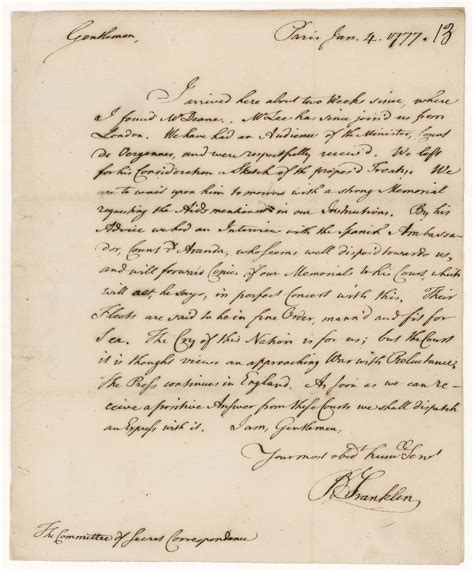 Gentlemen, Paris Jan. 4. 1777. 13
I arrived here about two Weeks since, where
I found Mr Deane. Mr Lee has since joined us from
London. We have had an Audience of the Minister, Count
de Vergennes, and were respectfully receiv'd. We left
for his Consideration a Sketch of the propos'd Treaty. We
are to wait upon him to morrow with a strong Memorial
requesting the Aids mentioned in our Instructions. By his
Advice we had an Interview with the Spanish Ambassa-
dor, Count d'Aranda, who seems well dispos'd towards us,
and will forward Copies of our Memorials to his Court, which
will act, he says, in perfect Concert with this. Their
Fleets are said to be in fine Order, mann'd and fit for
Sea. The Cry of this Nation is for us; but the Court
it is thought views an approaching War with Reluctance.
The Press continues in England. As soon as we can re-
ceive a positive Answer from these Courts we shall dispatch
an Express with it. I am, Gentlemen,
Your most obedt humb Servt
B Franklin
The Committee of Secret Correspondence